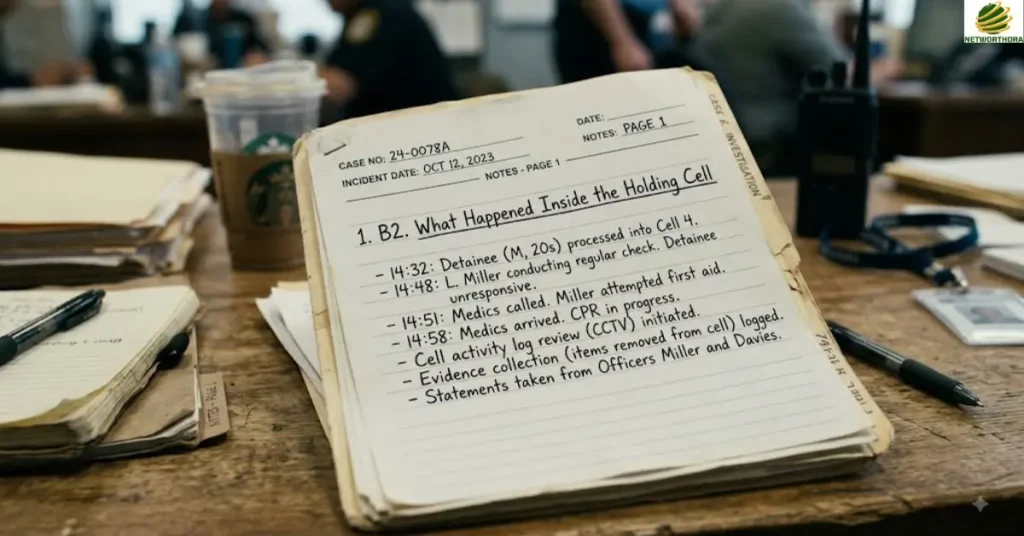 NETWORTHORA
CASE NO: 24-0078A
DATE:
INCIDENT DATE: OCT 12, 2023
NOTES: PAGE 1
NOTES - PAGE 1
1. B2. What Happened Inside the Holding Cell
- 14:32: Detainee (M, 20s) processed into Cell 4.
- 14:48: L. Miller conducting regular check. Detainee
unresponsive.
- 14:51: Medics called. Miller attempted first aid.
- 14:58: Medics arrived. CPR in progress.
- Cell activity log review (CCTV) initiated.
- Evidence collection (items removed from cell) logged.
- Statements taken from Officers Miller and Davies.
INVESTIGATION